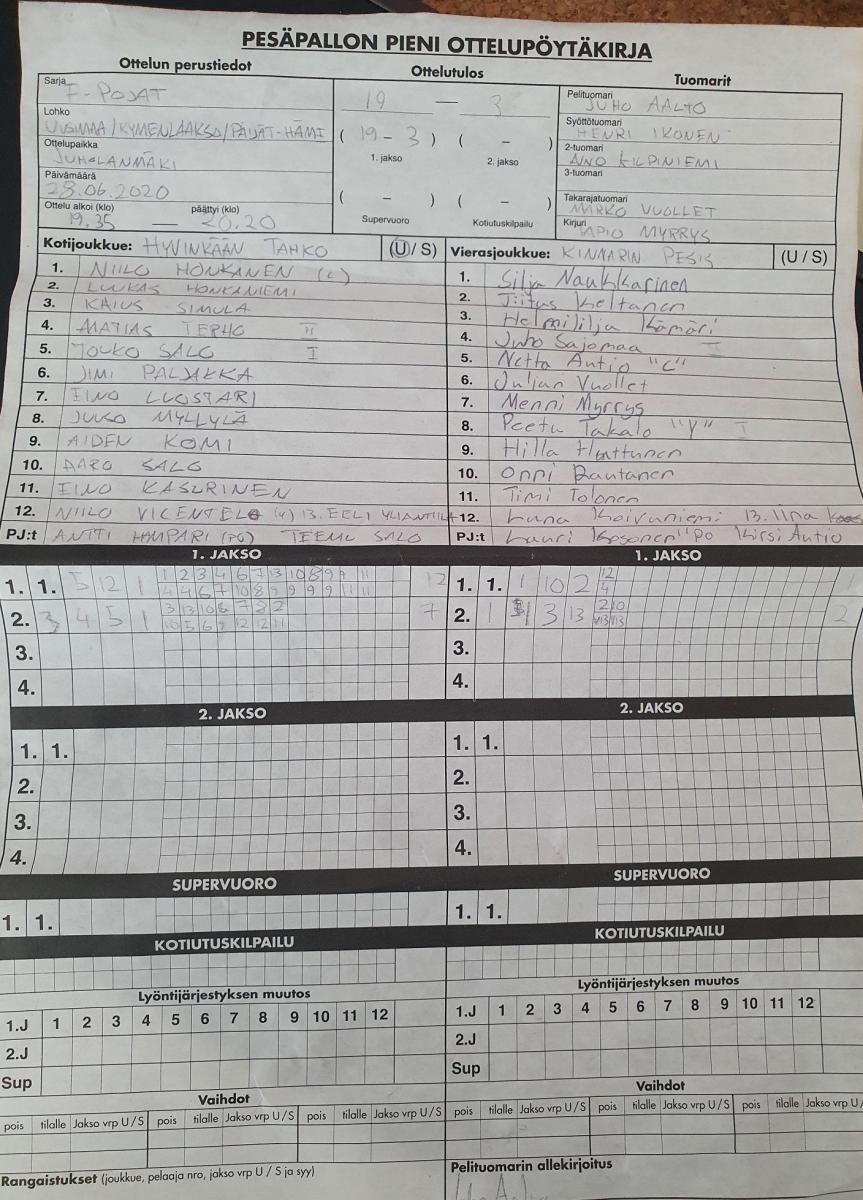 PESÄPALLON PIENI OTTELUPÖYTÄKIRJA
Ottelun perustiedot
Ottelutulos
Tuomarit
Sarja F-POJAT
Lohko UUSIMAA/KYMENLAAKSO/PÄIJÄT-HÄMI
Ottelupaikka JUHOLANMÄKI
Päivämäärä 28.06.2020
Ottelu alkoi (klo) 19.35 — päättyi (klo) 20.20
19 — 3
( 19 - 3 ) ( - )
1. jakso 2. jakso
( - ) ( - )
Supervuoro Kotiutuskilpailu
Pelituomari JUHO AALTO
Syöttötuomari HENRI IKONEN
2-tuomari AINO KILPINIEMI
3-tuomari
Takarajatuomari MARKO VUOLLET
Kirjuri TAPIO MYRRYS
Kotijoukkue: HYVINKÄÄN TAHKO (U / S)
1. NIILO HONKANEN (C)
2. LUUKAS HONKANIEMI
3. KAIUS SIMULA
4. MATIAS TERHO II
5. JOUKO SALO I
6. JIMI PALJAKKA
7. EINO LUOSTARI
8. JUUSO MYLLYLÄ
9. AIDEN KOMI
10. AARO SALO
11. EINO KASURINEN
12. NIILO VICENTELO (4) 13. EELI YLIANTTILA
PJ:t ANTTI HAMPARI (PO) TEEMU SALO
Vierasjoukkue: KINNARIN PESIS (U / S)
1. Silja Naukkarinen
2. Tiitus Keltanen
3. Helmililja Kämäri
4. Juho Sajomaa II
5. Netta Autio "C"
6. Julian Vuollet
7. Menni Myrrys
8. Peetu Takalo "Y" I
9. Hilla Huttunen
10. Onni Rautanen
11. Timi Tolonen
12. Luna Koivuniemi 13. Iina
PJ:t Lauri Kosonen "PO Kirsi Autio
1. JAKSO
1. 1. 5 12 1 1 2 3 4 6 7 13 10 8 9 7 11 12
4 4 6 7 10 8 9 9 9 9 11 11
2. 3 4 5 1 3 13 10 6 7 8 2 7
10 5 6 9 12 12 11
3.
4.
1. JAKSO
1. 1. 1 10 2 12 1
4
2. 1 3 13 2 10 2
13 13
3.
4.
2. JAKSO
1. 1.
2.
3.
4.
2. JAKSO
1. 1.
2.
3.
4.
SUPERVUORO
1. 1.
SUPERVUORO
1. 1.
KOTIUTUSKILPAILU
KOTIUTUSKILPAILU
Lyöntijärjestyksen muutos
1.J 1 2 3 4 5 6 7 8 9 10 11 12
2.J
Sup
Lyöntijärjestyksen muutos
1.J 1 2 3 4 5 6 7 8 9 10 11 12
2.J
Sup
Vaihdot
pois tilalle Jakso vrp U / S pois tilalle Jakso vrp U / S pois tilalle Jakso vrp U / S
Vaihdot
pois tilalle Jakso vrp U / S pois tilalle Jakso vrp U / S pois tilalle Jakso vrp U /
Rangaistukset (joukkue, pelaaja nro, jakso vrp U / S ja syy)
Pelituomarin allekirjoitus